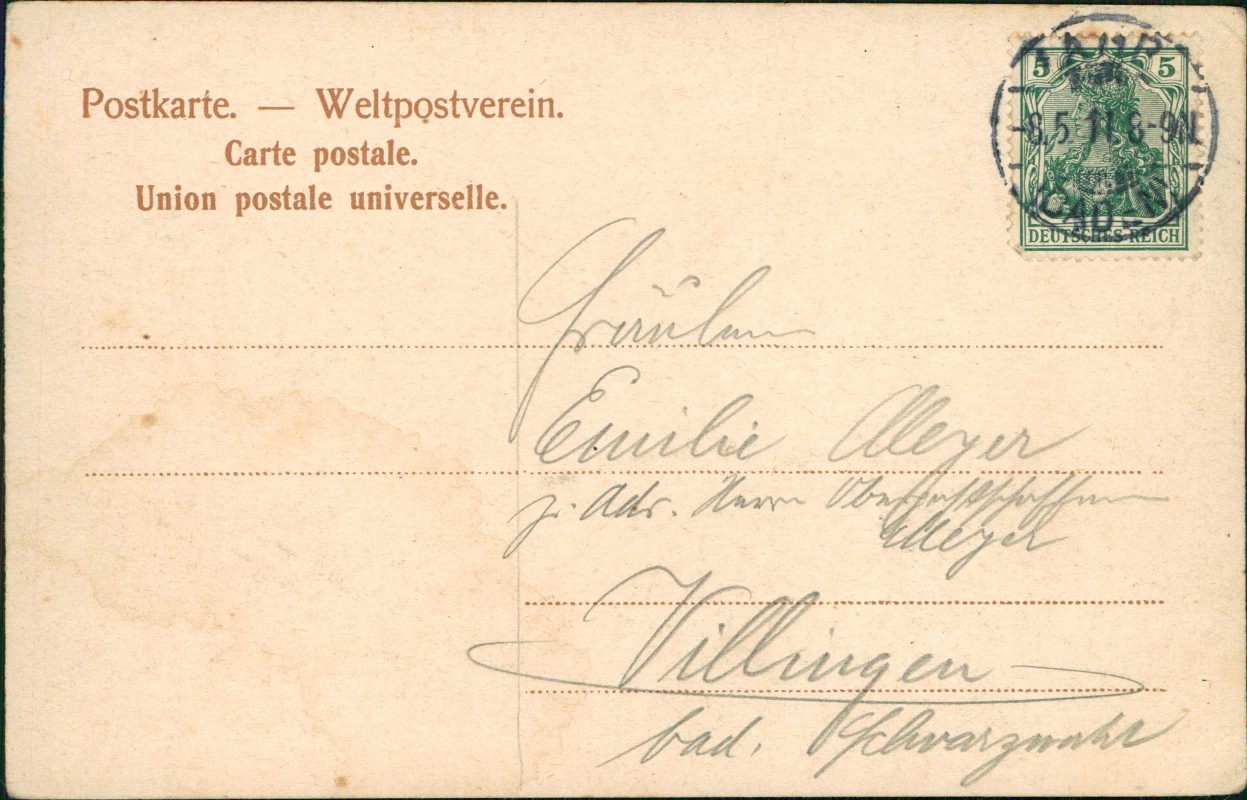 Postkarte. — Weltpostverein.
Carte postale.
Union postale universelle.
5 5
-8.5.11.8-9N.
DEUTSCHES REICH
Fräulein
Emilie Meyer
z. Adr. Herrn Oberpostschaffner
Meyer
Villingen
bad. Schwarzwald